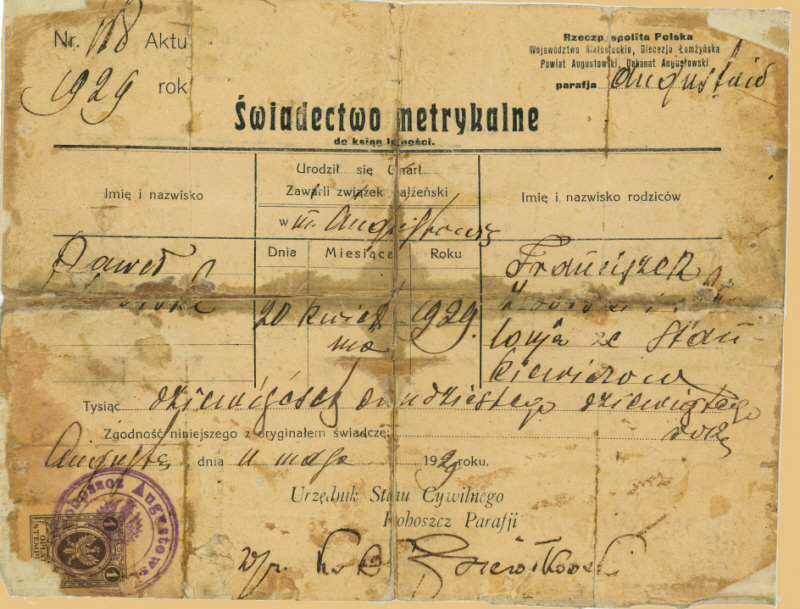 Nr. 118 Aktu
1929 rok
Rzeczpospolita Polska
Województwo Białostockie, Diecezja Łomżyńska
Powiat Augustowski, Dekanat Augustowski
parafja Augustów
Świadectwo metrykalne
do ksiąg ludności.
Imię i nazwisko
Urodził się Umarł
Zawarli związek małżeński
w m. Augustowie
Imię i nazwisko rodziców
Dnia Miesiąca Roku
Paweł
20 kwiet
nia
1929.
Franciszek
i
lonja ze Stan-
kiewiczów
Tysiąc dziewięćset dwudziestego dziewiątego
roku
Zgodność niniejszego z oryginałem świadczę:
Augustów, dnia 11 maja 1929 roku.
Urzędnik Stanu Cywilnego
Proboszcz Parafji
w/z. Ks.
Proboszcz Augustows
1 OPŁAT STEMPL 1